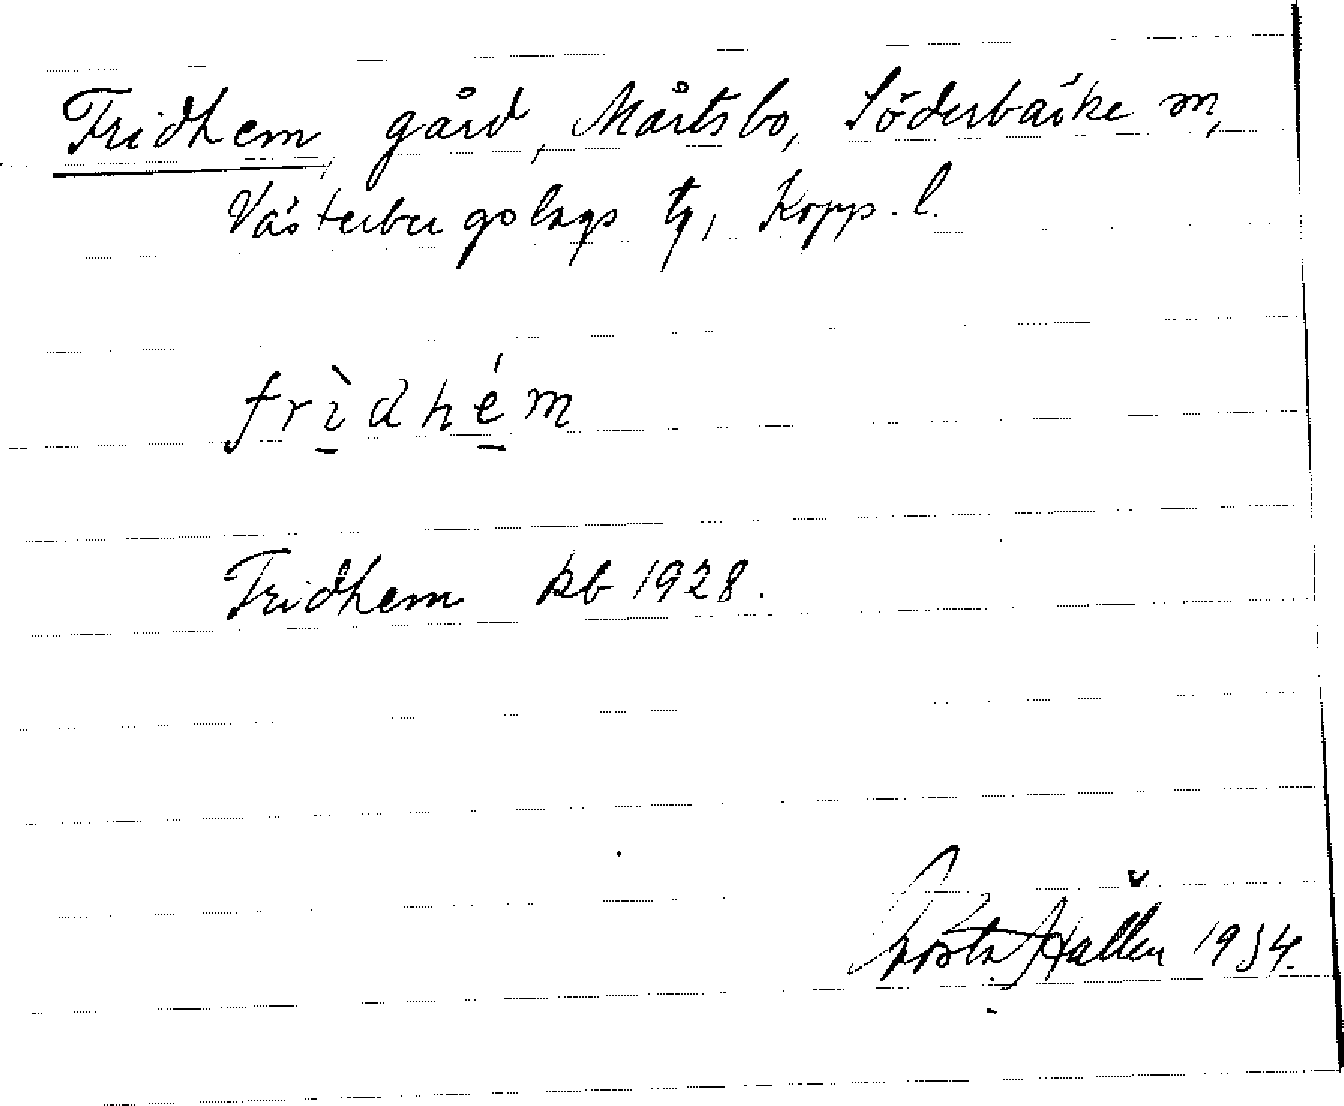 Fridhem, gård, Mårtsbo, Söderbärke sn,
Västerbergslags tg, Kopp. l.
frìdhém
Fridhem kb 1928.
Gösta Hallén 1934.